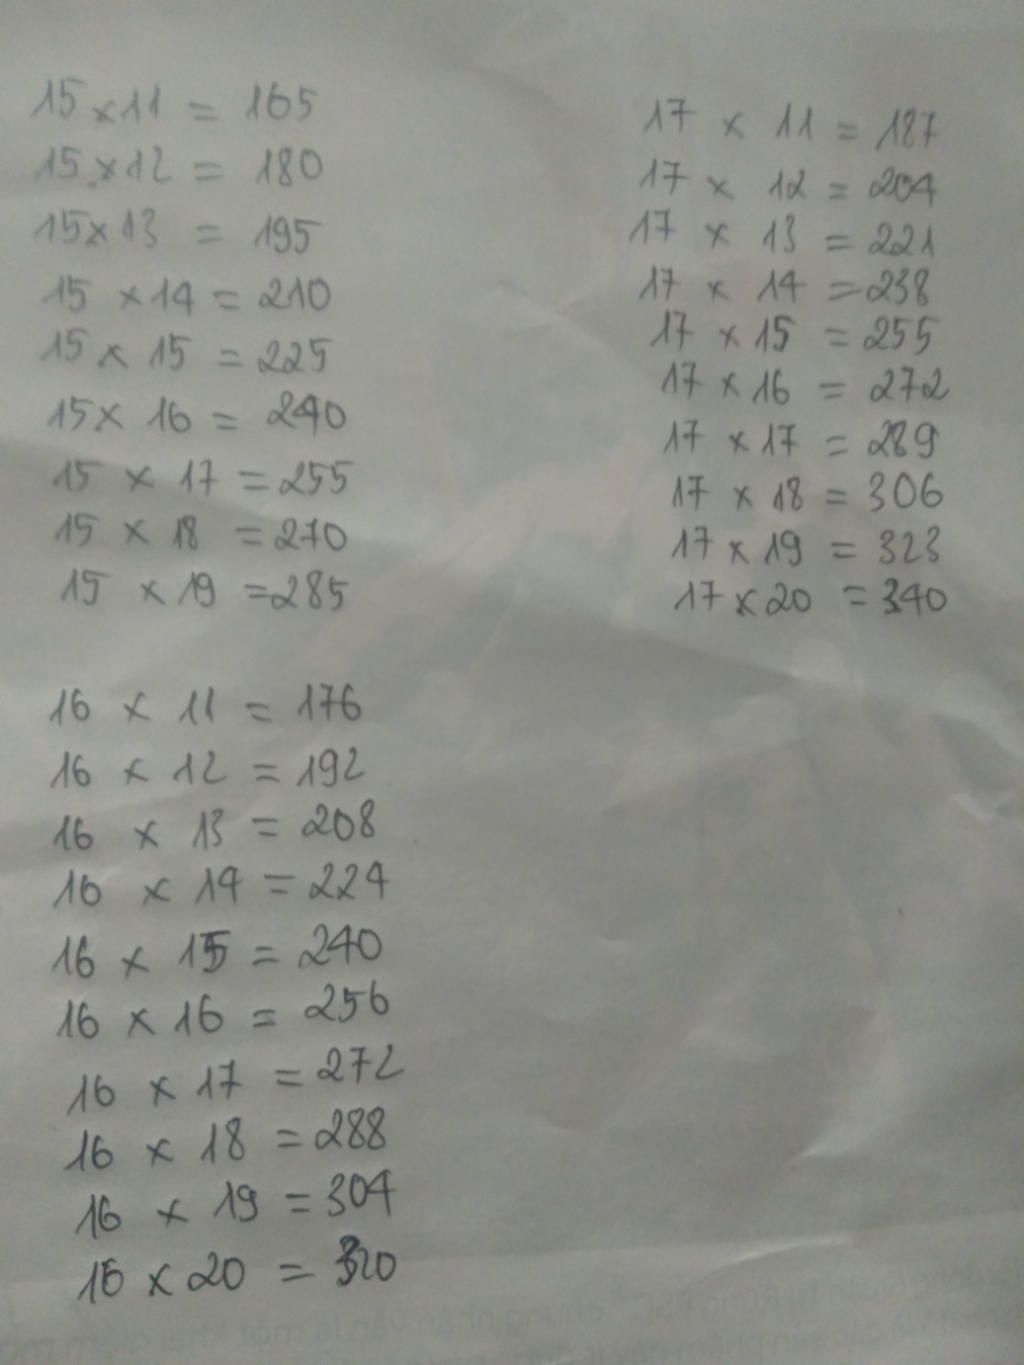 15 x 11 = 165
15 x 12 = 180
15 x 13 = 195
15 x 14 = 210
15 x 15 = 225
15 x 16 = 240
15 x 17 = 255
15 x 18 = 270
15 x 19 = 285
16 x 11 = 176
16 x 12 = 192
16 x 13 = 208
16 x 14 = 224
16 x 15 = 240
16 x 16 = 256
16 x 17 = 272
16 x 18 = 288
16 x 19 = 304
16 x 20 = 320
17 x 11 = 187
17 x 12 = 204
17 x 13 = 221
17 x 14 = 238
17 x 15 = 255
17 x 16 = 272
17 x 17 = 289
17 x 18 = 306
17 x 19 = 323
17 x 20 = 340